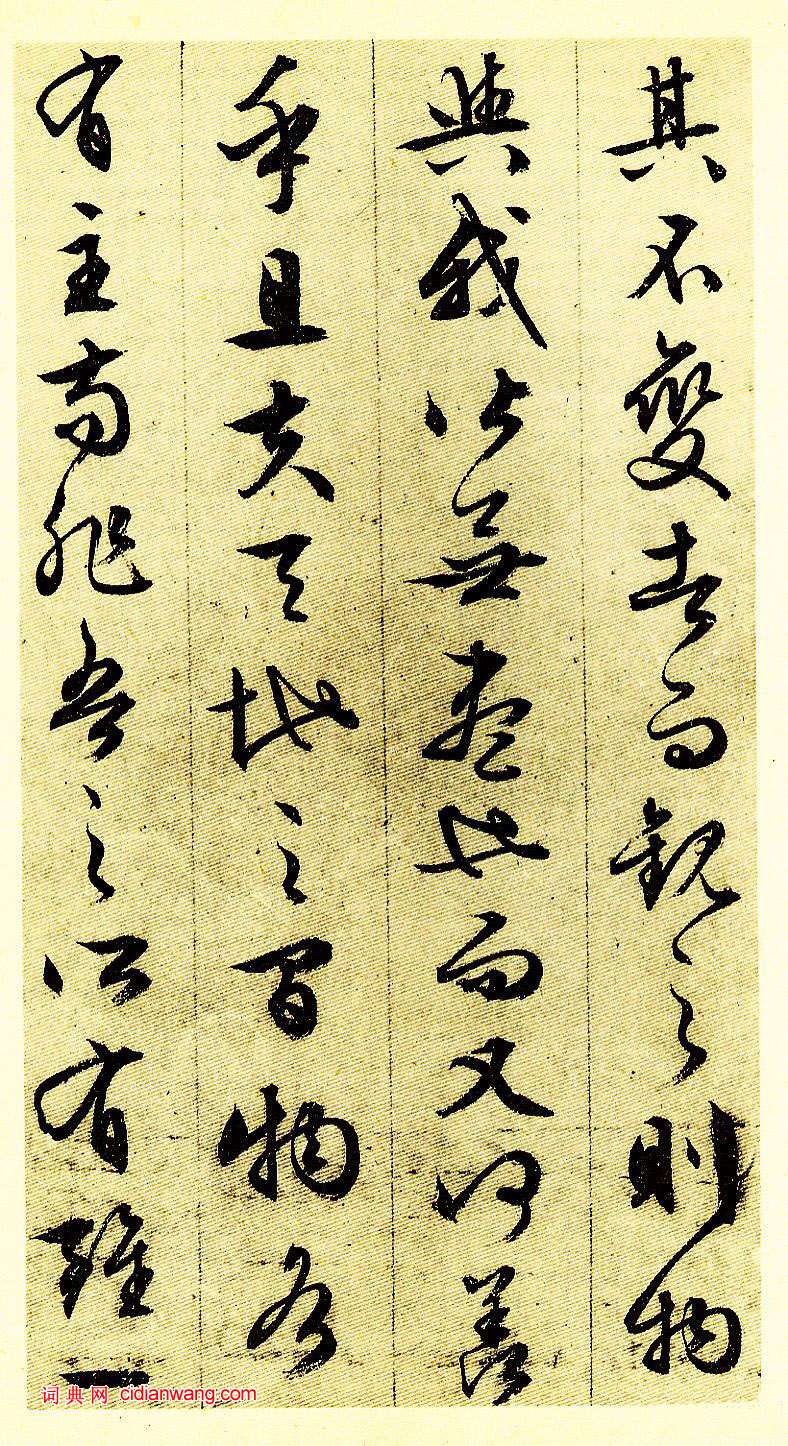 其不變者而觀之則物
與我皆無盡也而又何羨
乎且夫天地之間物各
有主苟非吾之所有雖一
词典网 cidianwang.com